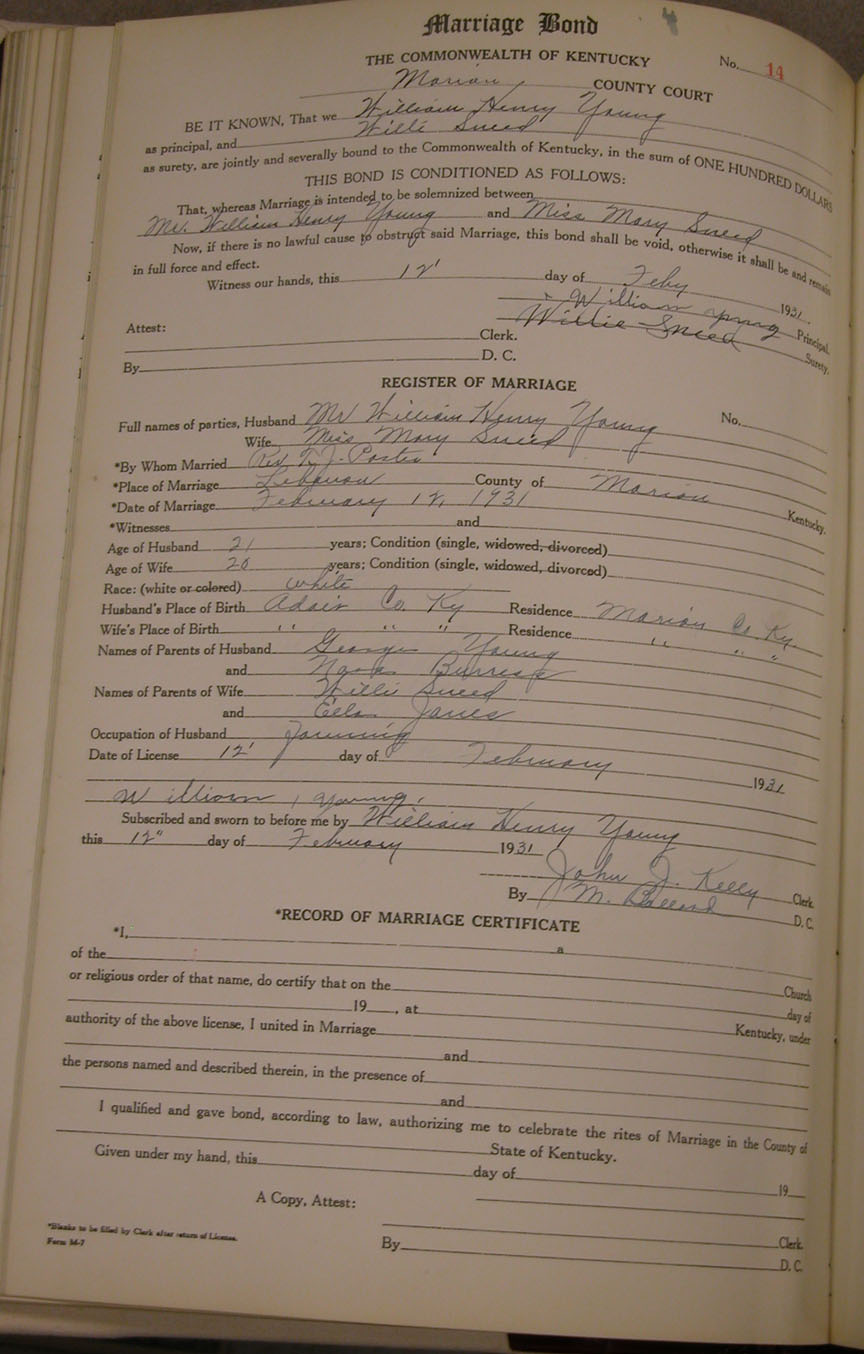 Marriage Bond
THE COMMONWEALTH OF KENTUCKY No. 14
Marion COUNTY COURT
BE IT KNOWN, That we William Henry Young
as principal, and Willi Sneed
as surety, are jointly and severally bound to the Commonwealth of Kentucky, in the sum of ONE HUNDRED DOLLARS
THIS BOND IS CONDITIONED AS FOLLOWS:
That, whereas Marriage is intended to be solemnized between
Mr. William Henry Young and Miss Mary Sneed
Now, if there is no lawful cause to obstruct said Marriage, this bond shall be void, otherwise it shall be and remain
in full force and effect.
Witness our hands, this 12' day of Feby 1931.
William Young Principal.
Attest: Willie Sneed Surety.
Clerk.
By D. C.
REGISTER OF MARRIAGE
Full names of parties, Husband Mr William Henry Young No.
Wife Miss Mary Sneed
*By Whom Married Rev T. J. Porter
*Place of Marriage Lebanon County of Marion Kentucky.
*Date of Marriage February 12, 1931
*Witnesses and
Age of Husband 21 years; Condition (single, widowed, divorced)
Age of Wife 20 years; Condition (single, widowed, divorced)
Race: (white or colored) white
Husband's Place of Birth Adair Co. Ky Residence Marion Co Ky.
Wife's Place of Birth " " " Residence " " "
Names of Parents of Husband George Young
and
Names of Parents of Wife Willi Sneed
and Ella Janes
Occupation of Husband Farming
Date of License 12' day of February 1931
William, Young.
Subscribed and sworn to before me by William Henry Young
this 12" day of February 1931
John J. Kelly Clerk
By M. Ballard D. C.
*RECORD OF MARRIAGE CERTIFICATE
*I, a
of the Church
or religious order of that name, do certify that on the day of
19 , at Kentucky, under
authority of the above license, I united in Marriage
and
the persons named and described therein, in the presence of
and
I qualified and gave bond, according to law, authorizing me to celebrate the rites of Marriage in the County of
State of Kentucky.
Given under my hand, this day of 19
A Copy, Attest:
*Blanks to be filled by Clerk after return of License. Clerk.
Form M-7 By D. C.